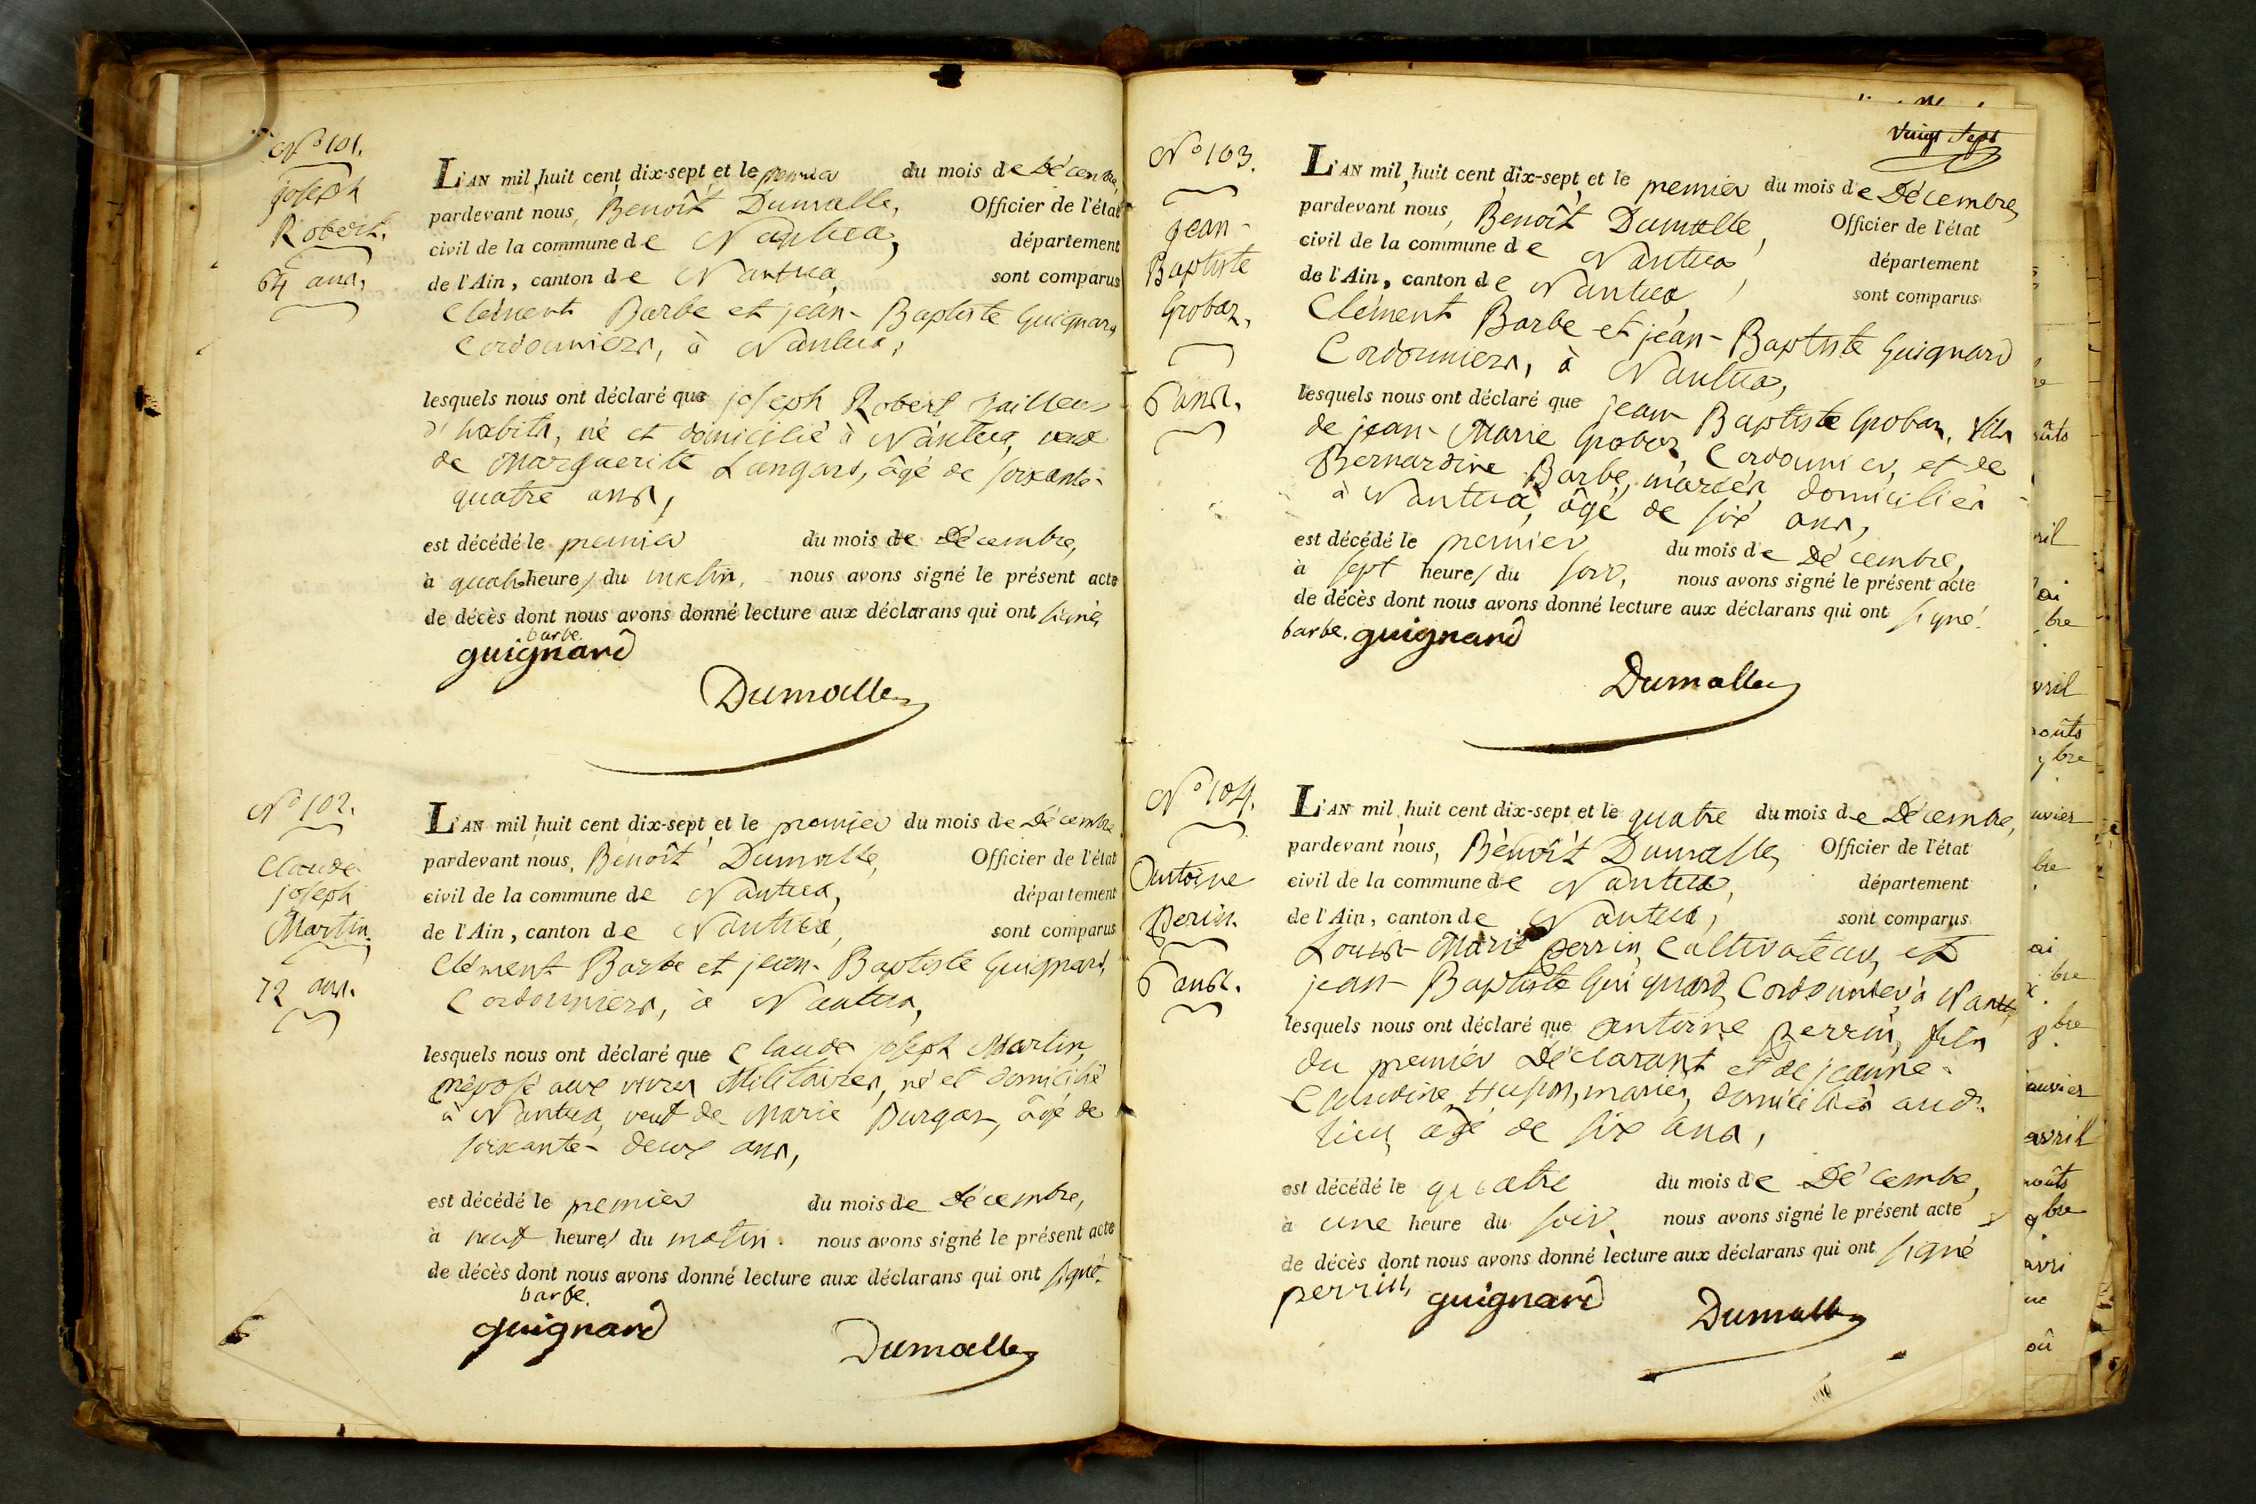 N° 101.
joseph
Robert.
64 ans,
L'AN mil huit cent dix-sept et le premier du mois de Décembre,
pardevant nous, Benoît Dumolle, Officier de l'état
civil de la commune de Nantua, département
de l'Ain, canton de Nantua, sont comparus
Clément Barbe et jean-Baptiste Guignard,
Cordonniers, à Nantua,
lesquels nous ont déclaré que joseph Robert tailleur
d'habits, né et domicilié à Nantua, veuf
de Marguerite Langard, âgé de soixante-
quatre ans,
est décédé le premier du mois de Décembre,
à quatre heures du matin. nous avons signé le présent acte
de décès dont nous avons donné lecture aux déclarans qui ont signé,
barbe.
guignard
Dumolle
N° 102.
Claude
joseph
Martin.
72 ans.
L'AN mil huit cent dix-sept et le premier du mois de Décembre
pardevant nous, Benoît Dumolle, Officier de l'état
civil de la commune de Nantua, département
de l'Ain, canton de Nantua, sont comparus
Clément Barbe et jean-Baptiste Guignard,
Cordonniers, à Nantua,
lesquels nous ont déclaré que Claude joseph Martin,
préposé aux vivres Militaires, né et domicilié
à Nantua, veuf de Marie Burgas, âgé de
soixante-deux ans,
est décédé le premier du mois de Décembre,
à neuf heures du matin. nous avons signé le présent acte
de décès dont nous avons donné lecture aux déclarans qui ont signé.
barbe.
guignard
Dumolle
vingt sept
N° 103.
jean-
Baptiste
Grobaz,
6 ans.
L'AN mil huit cent dix-sept et le premier du mois de Décembre,
pardevant nous, Benoît Dumolle, Officier de l'état
civil de la commune de Nantua, département
de l'Ain, canton de Nantua, sont comparus
Clément Barbe et jean-Baptiste Guignard
Cordonniers, à Nantua,
lesquels nous ont déclaré que jean Baptiste Grobaz, fils
de jean-Marie Grobaz, Cordonnier, et de
Bernardine Barbe, mariés, domiciliés
à Nantua, âgé de six ans,
est décédé le premier du mois de Décembre,
à sept heures du soir, nous avons signé le présent acte
de décès dont nous avons donné lecture aux déclarans qui ont signé.
barbe. guignard
Dumolle
N° 104.
Antoine
Perrin.
6 ans.
L'AN mil huit cent dix-sept et le quatre du mois de Décembre,
pardevant nous, Benoît Dumolle, Officier de l'état
civil de la commune de Nantua, département
de l'Ain, canton de Nantua, sont comparus
Louis-Marie perrin, Cultivateur, et
jean-Baptiste Guignard, Cordonnier, à Nantua
lesquels nous ont déclaré que antoine perrin, fils
du premier Déclarant et de jeanne-
Claudine mariés, domiciliés aud.
lieu, âgé de six ans,
est décédé le quatre du mois de Décembe,
à une heure du soir. nous avons signé le présent acte
de décès dont nous avons donné lecture aux déclarans qui ont signé
perrin, guignard
Dumolle